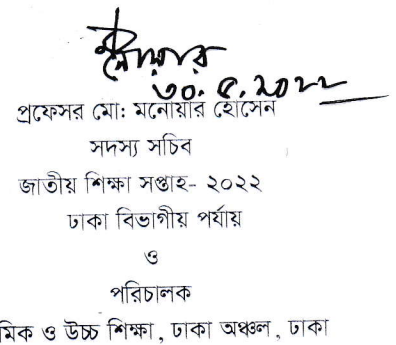 মনোয়ার
৩০.৫.২০২২
প্রফেসর মো: মনোয়ার হোসেন
সদস্য সচিব
জাতীয় শিক্ষা সপ্তাহ- ২০২২
ঢাকা বিভাগীয় পর্যায়
ও
পরিচালক
মিক ও উচ্চ শিক্ষা, ঢাকা অঞ্চল, ঢাকা